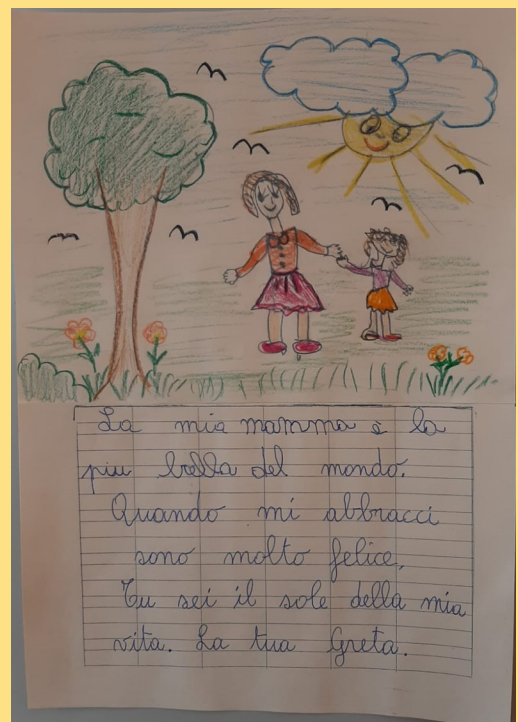 La mia mamma è la
piu bella del mondo.
Quando mi abbracci
sono molto felice,
Tu sei il sole della mia
vita. La tua Greta.